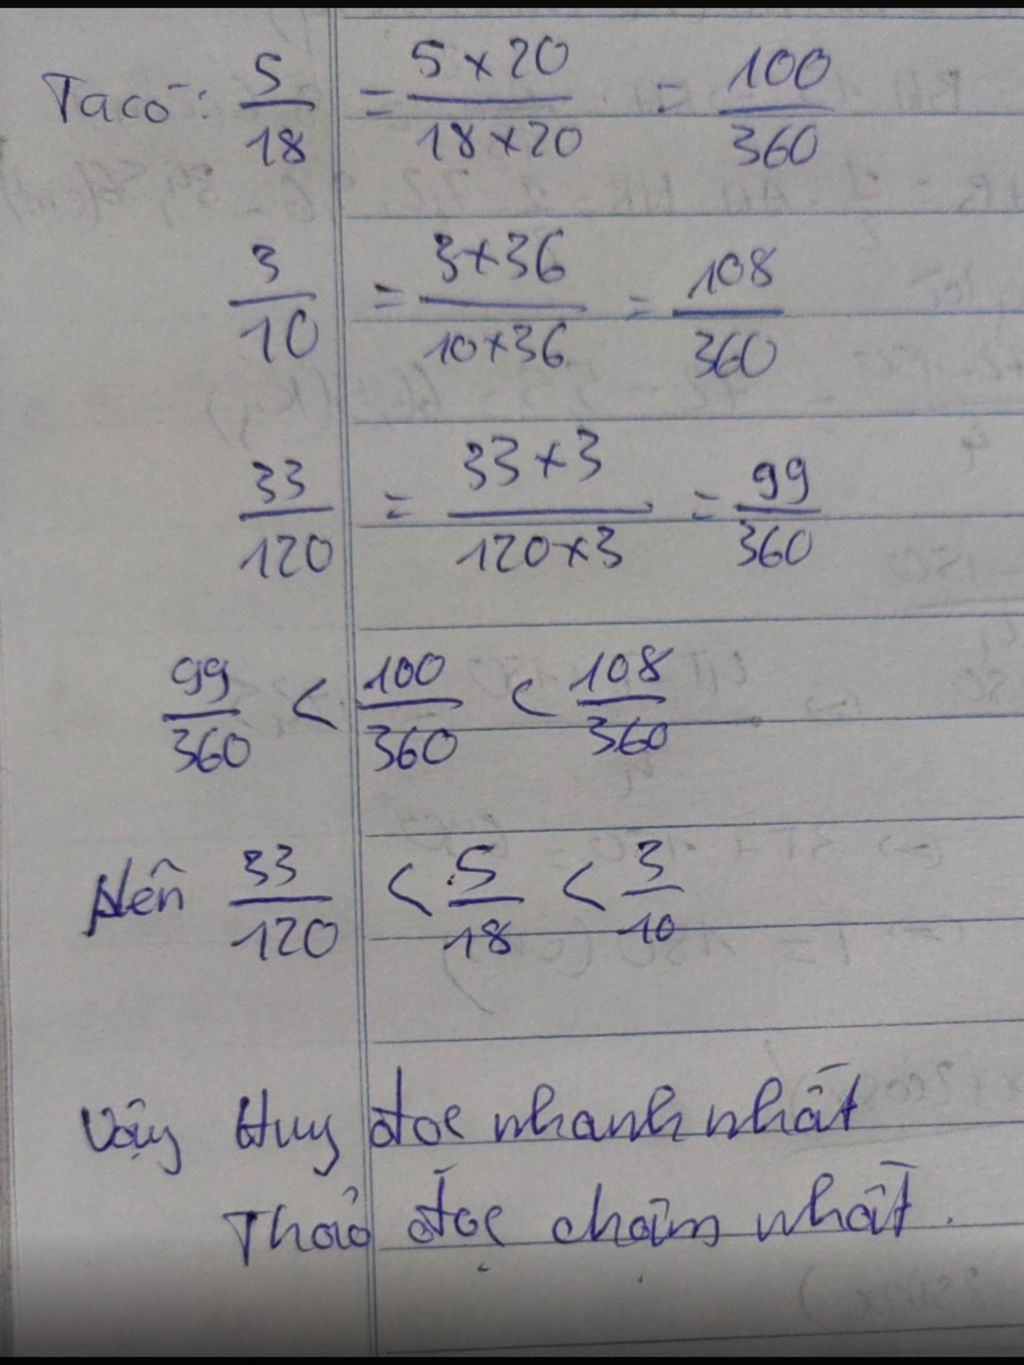 Ta có: 5/18 = 5 × 20/18 × 20 = 100/360
3/10 = 3 × 36/10 × 36 = 108/360
33/120 = 33 × 3/120 × 3 = 99/360
99/360 < 100/360 < 108/360
Nên 33/120 < 5/18 < 3/10
Vậy Huy đọc nhanh nhất
Thảo đọc chậm nhất.